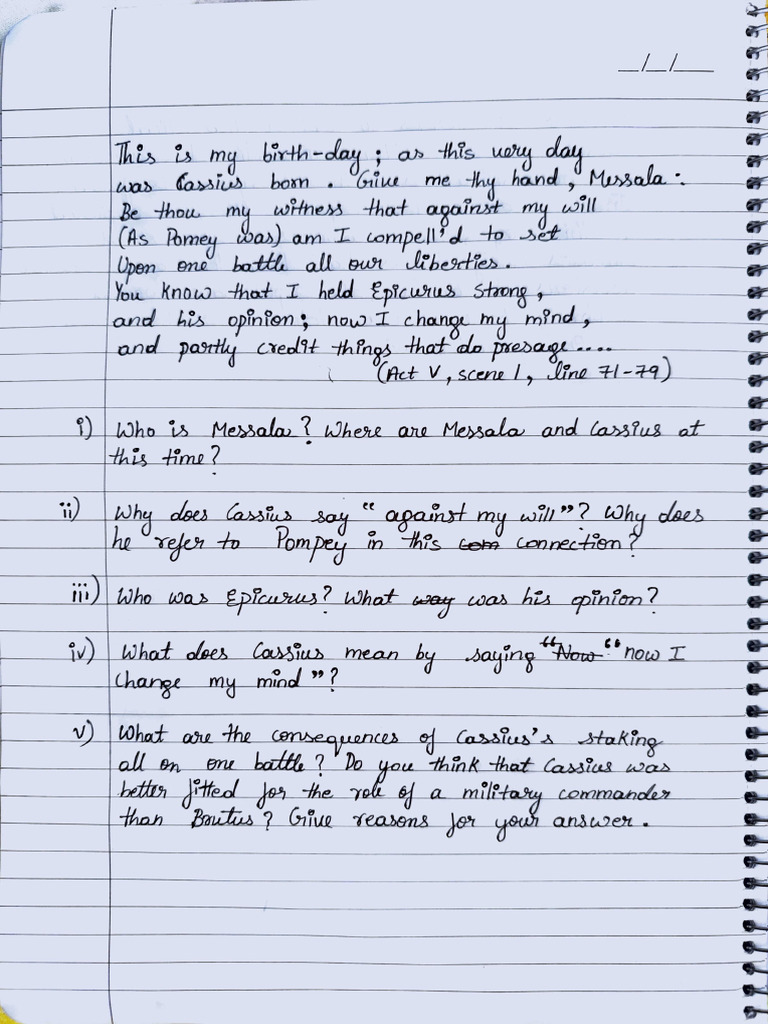 _/_/__
This is my birth-day ; as this very day
was Cassius born . Give me thy hand, Messala :
Be thou my witness that against my will
(As Pomey was) am I compell'd to set
Upon one battle all our liberties .
You know that I held Epicurus strong ,
and his opinion ; now I change my mind ,
and partly credit things that do presage ....
(Act V , scene 1 , line 71-79)
i) Who is Messala ? Where are Messala and Cassius at
this time ?
ii) Why does Cassius say " against my will" ? Why does
he refer to Pompey in this com connection ?
iii) Who was Epicurus ? What way was his opinion ?
iv) What does Cassius mean by saying "Now "now I
change my mind " ?
v) What are the consequences of Cassius's staking
all on one battle ? Do you think that Cassius was
better fitted for the role of a military commander
than Brutus ? Give reasons for your answer .